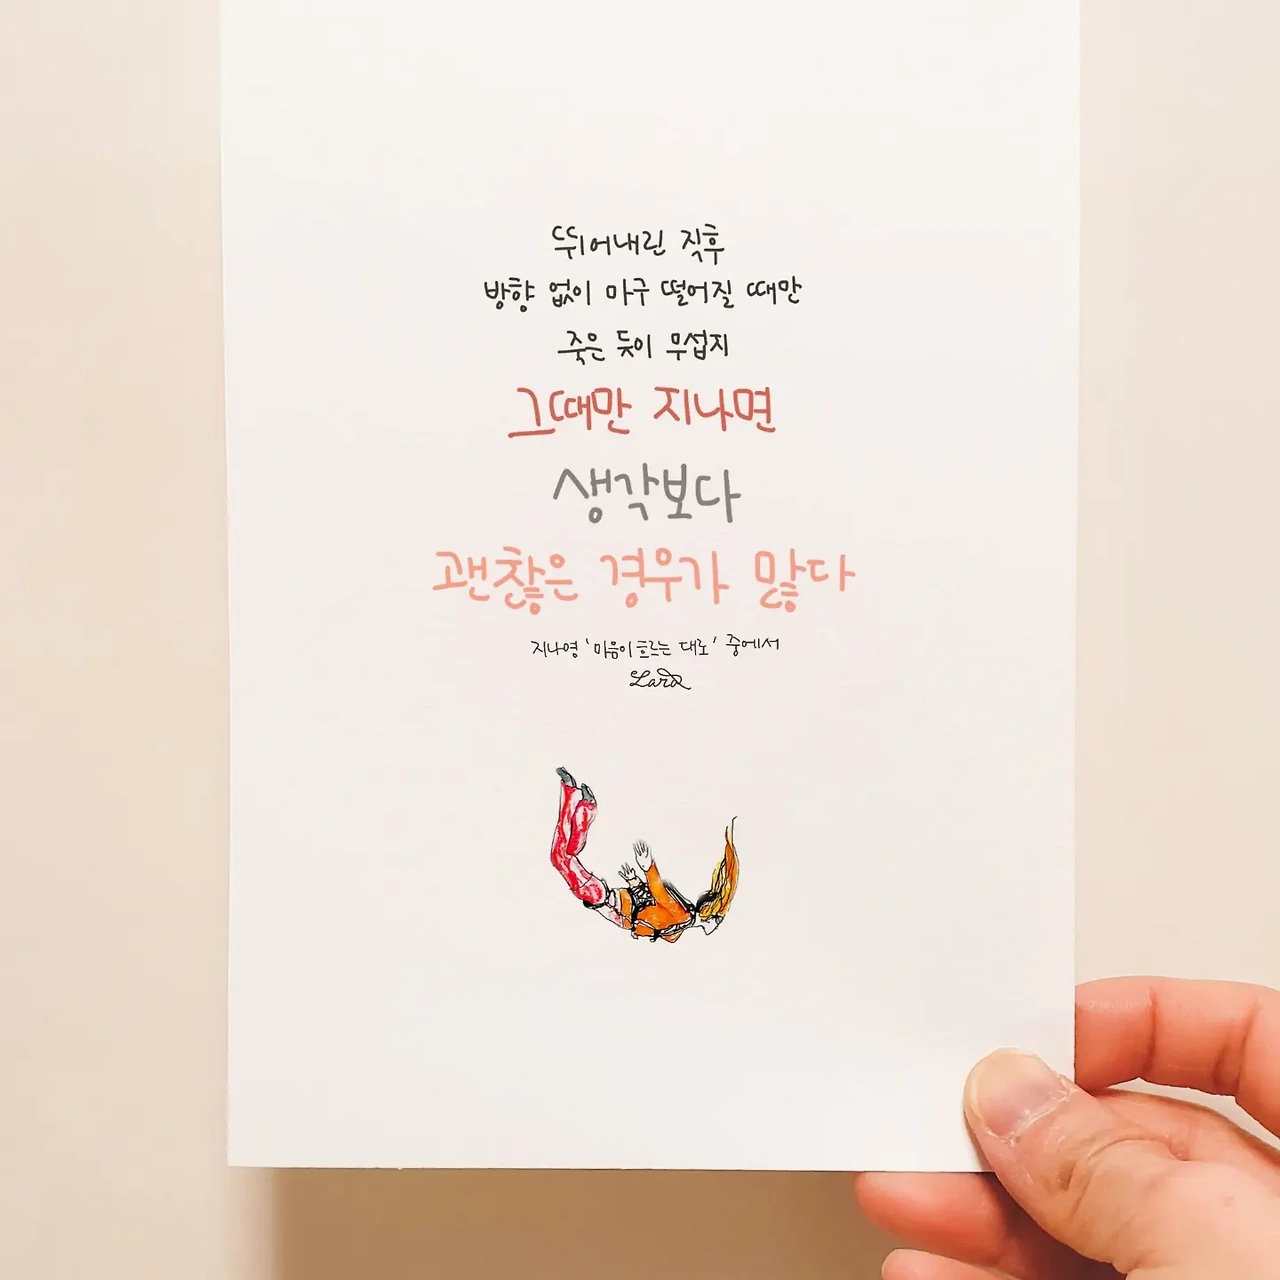 뛰어내린 직후
방향 없이 마구 떨어질 때만
죽은 듯이 무섭지
그때만 지나면
생각보다
괜찮은 경우가 많다
지나영 '마음이 흐르는 대로' 중에서
Lara